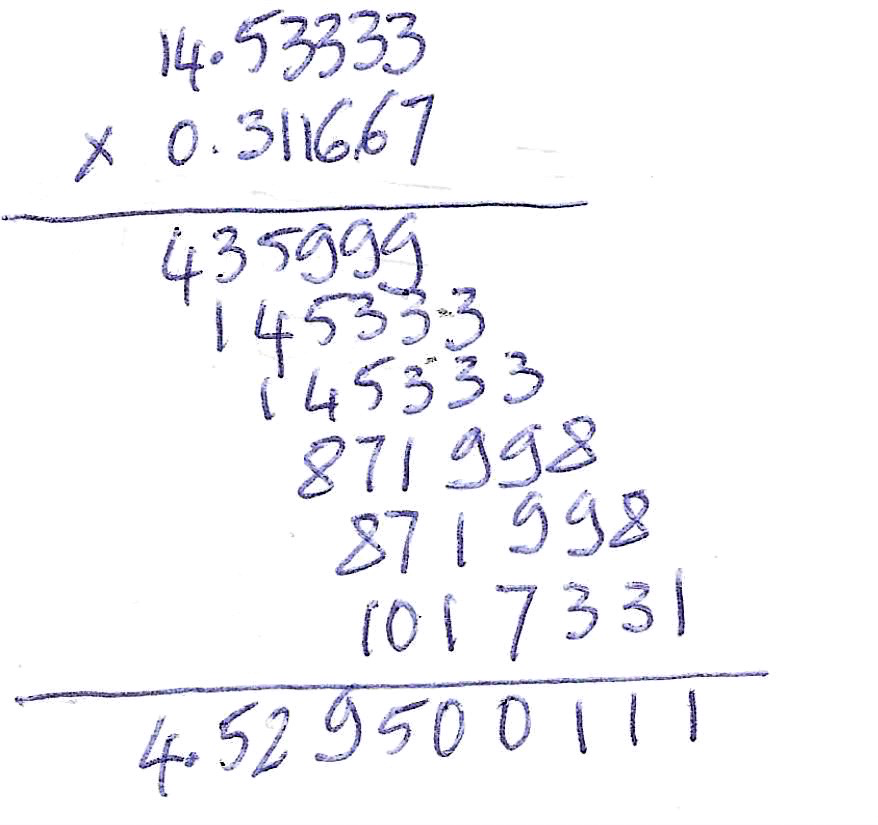 14.53333
× 0.311667
435999
145333
145333
871998
871998
1017331
4.529500111